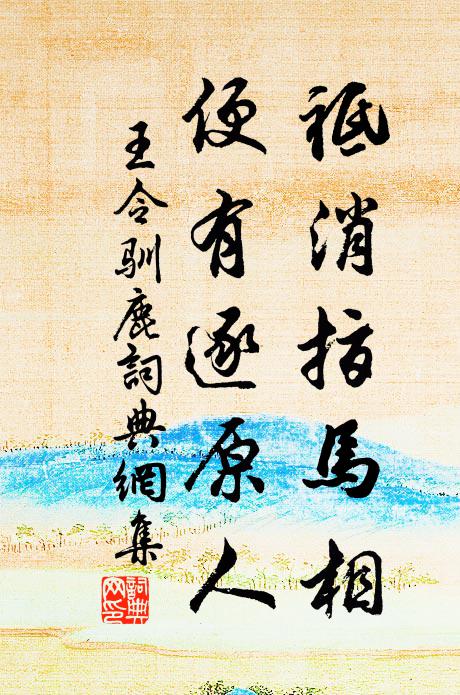 祗消指馬相
便有逐原人
王令馴鹿詞典網集
詞典网印